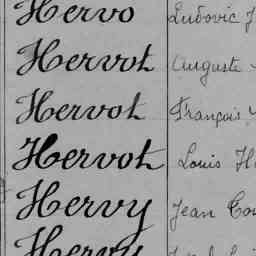 Hervo Ludovic J
Hervot Auguste
Hervot François
Hervot Louis H
Hervy Jean Cou
Hervy